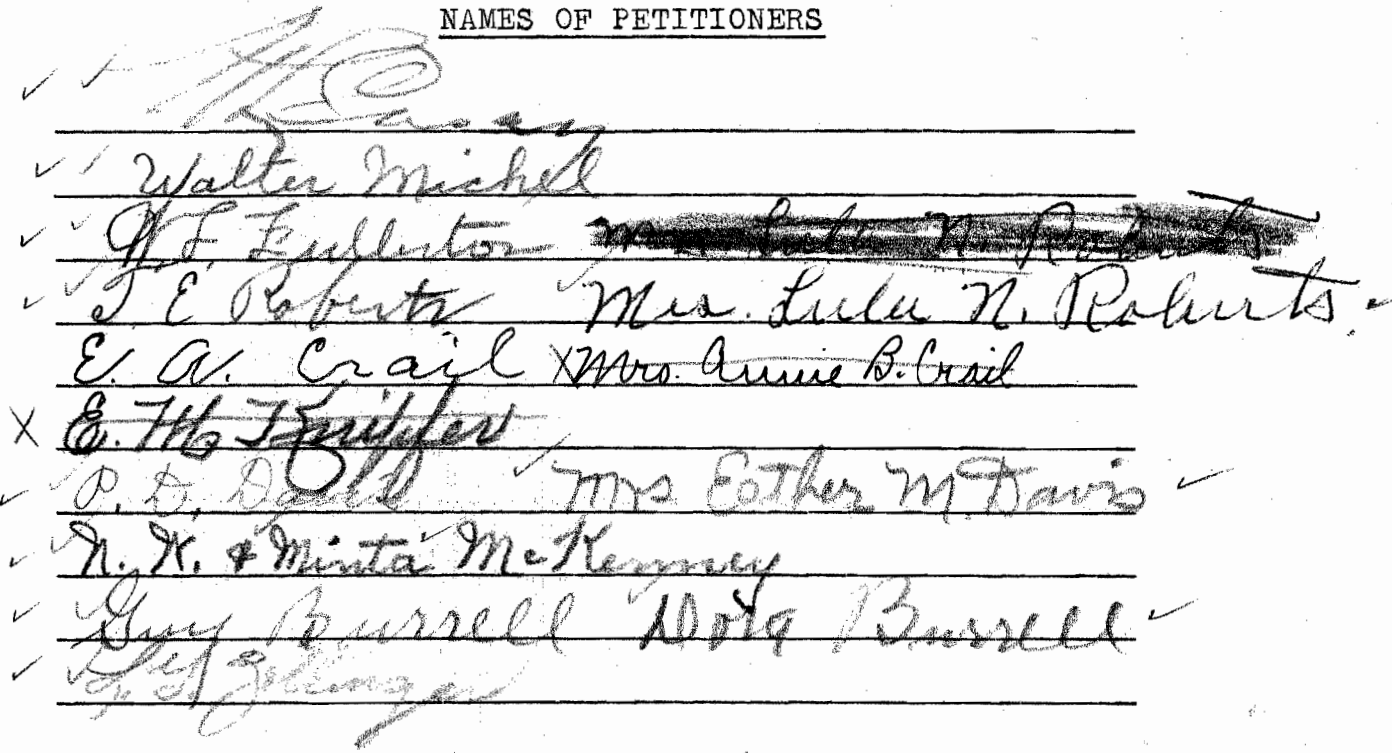 NAMES OF PETITIONERS
Casey
Walter Michel
W. L. Fullerton Mrs. Lulu N. Roberts
T. E. Roberts Mrs. Lulu N. Roberts.
E. A. Crail X Mrs. Annie B. Crail
X E. M.
P. D. Davis Mrs Esther M. Davis
N. K. & Minta McKenney
Guy Burrell Dora Burrell